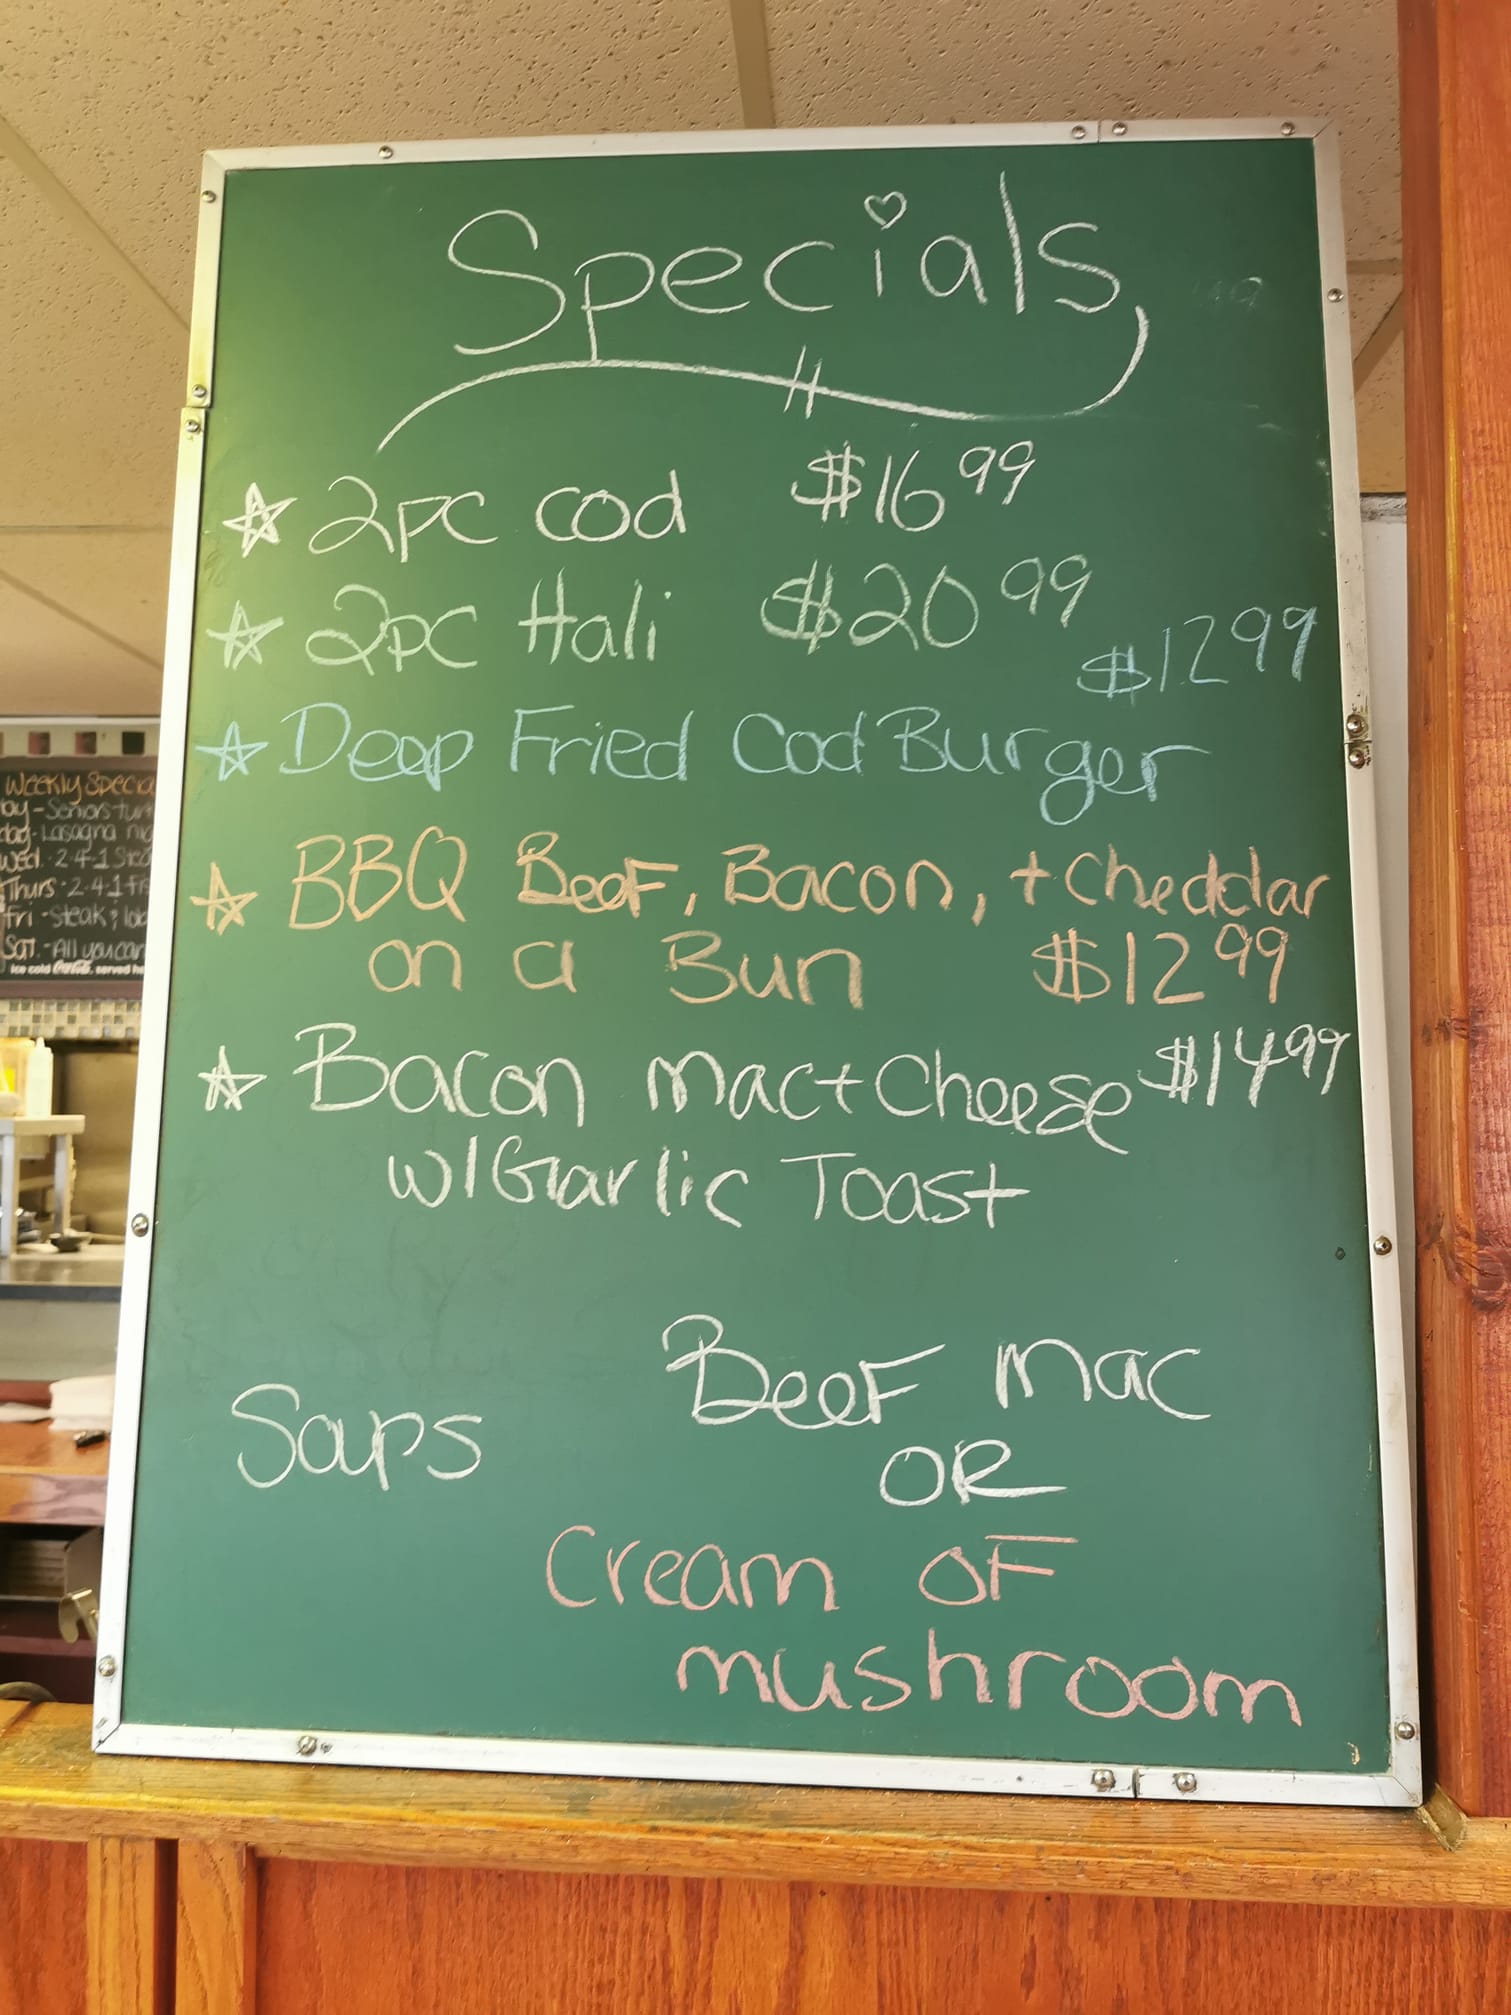 Specials
2pc cod $16.99
2pc Hali $20.99
$12.99
Deep Fried Cod Burger
BBQ Beef, Bacon, + Cheddar
on a Bun $12.99
Bacon mac + Cheese $14.99
w/ Garlic Toast
Beef mac
Soups
OR
Cream OF
mushroom
Weekly
Seniors
Lasagna
Wed. 2-4-1
Thurs - 2-4-1
Fri - Steak &
Sat. - All you can
Ice cold Coca-Cola, served